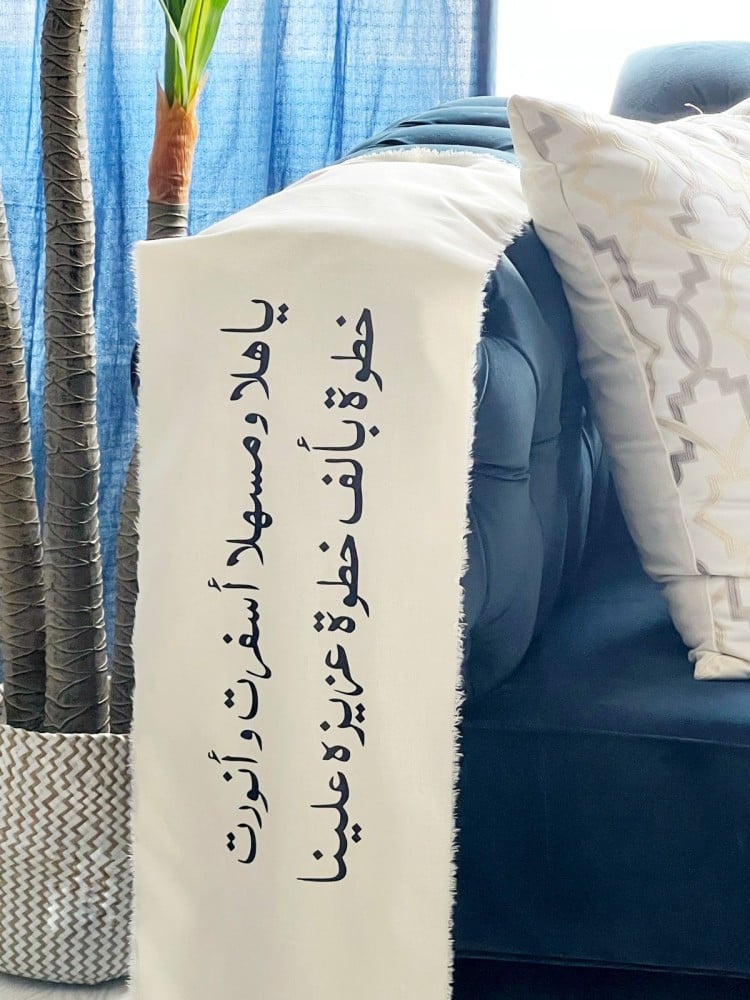 ياهلا ومسهلا أسفرت و أنورت
خطوة بألف خطوة عزيزه علينا